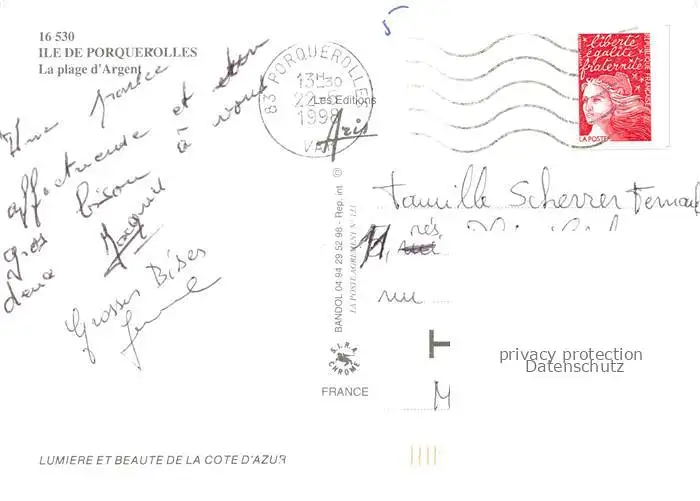 16 530
ILE DE PORQUEROLLES
La plage d'Argent
Une pensée
affectueuse et
gros bisou à vous
deux Jacquie
Grosses Bises
5
83 PORQUEROLLES
13H30
22-5
1998
VAR
Les Editions
Aris
liberté
égalité
fraternité
LA POSTE
Famille Scherrer Fernand
rés.
rue
T
M
privacy protection
Datenschutz
BANDOL 04 94 29 52 98 - Rep. int ©
LA POSTE AGREMENT N° 133
S.I.R.A.
CHROME
FRANCE
LUMIERE ET BEAUTE DE LA COTE D'AZUR